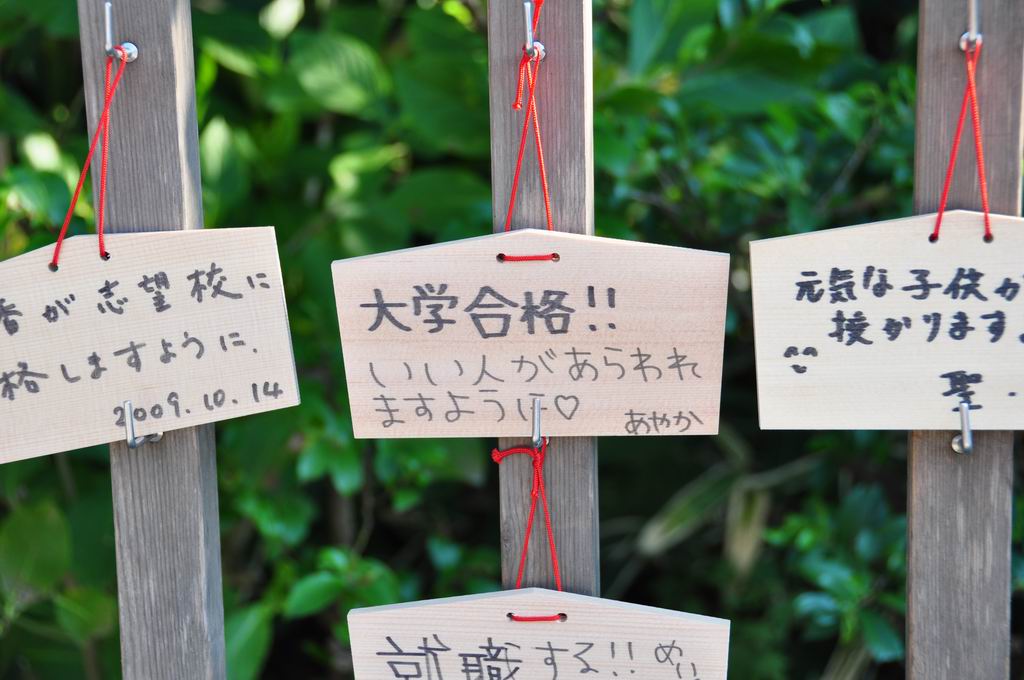 香が志望校に
格しますように.
2009.10.14
大学合格!!
いい人があらわれ
ますように♡
あやか
元気な子供が
授かります
聖
就職する!! めい